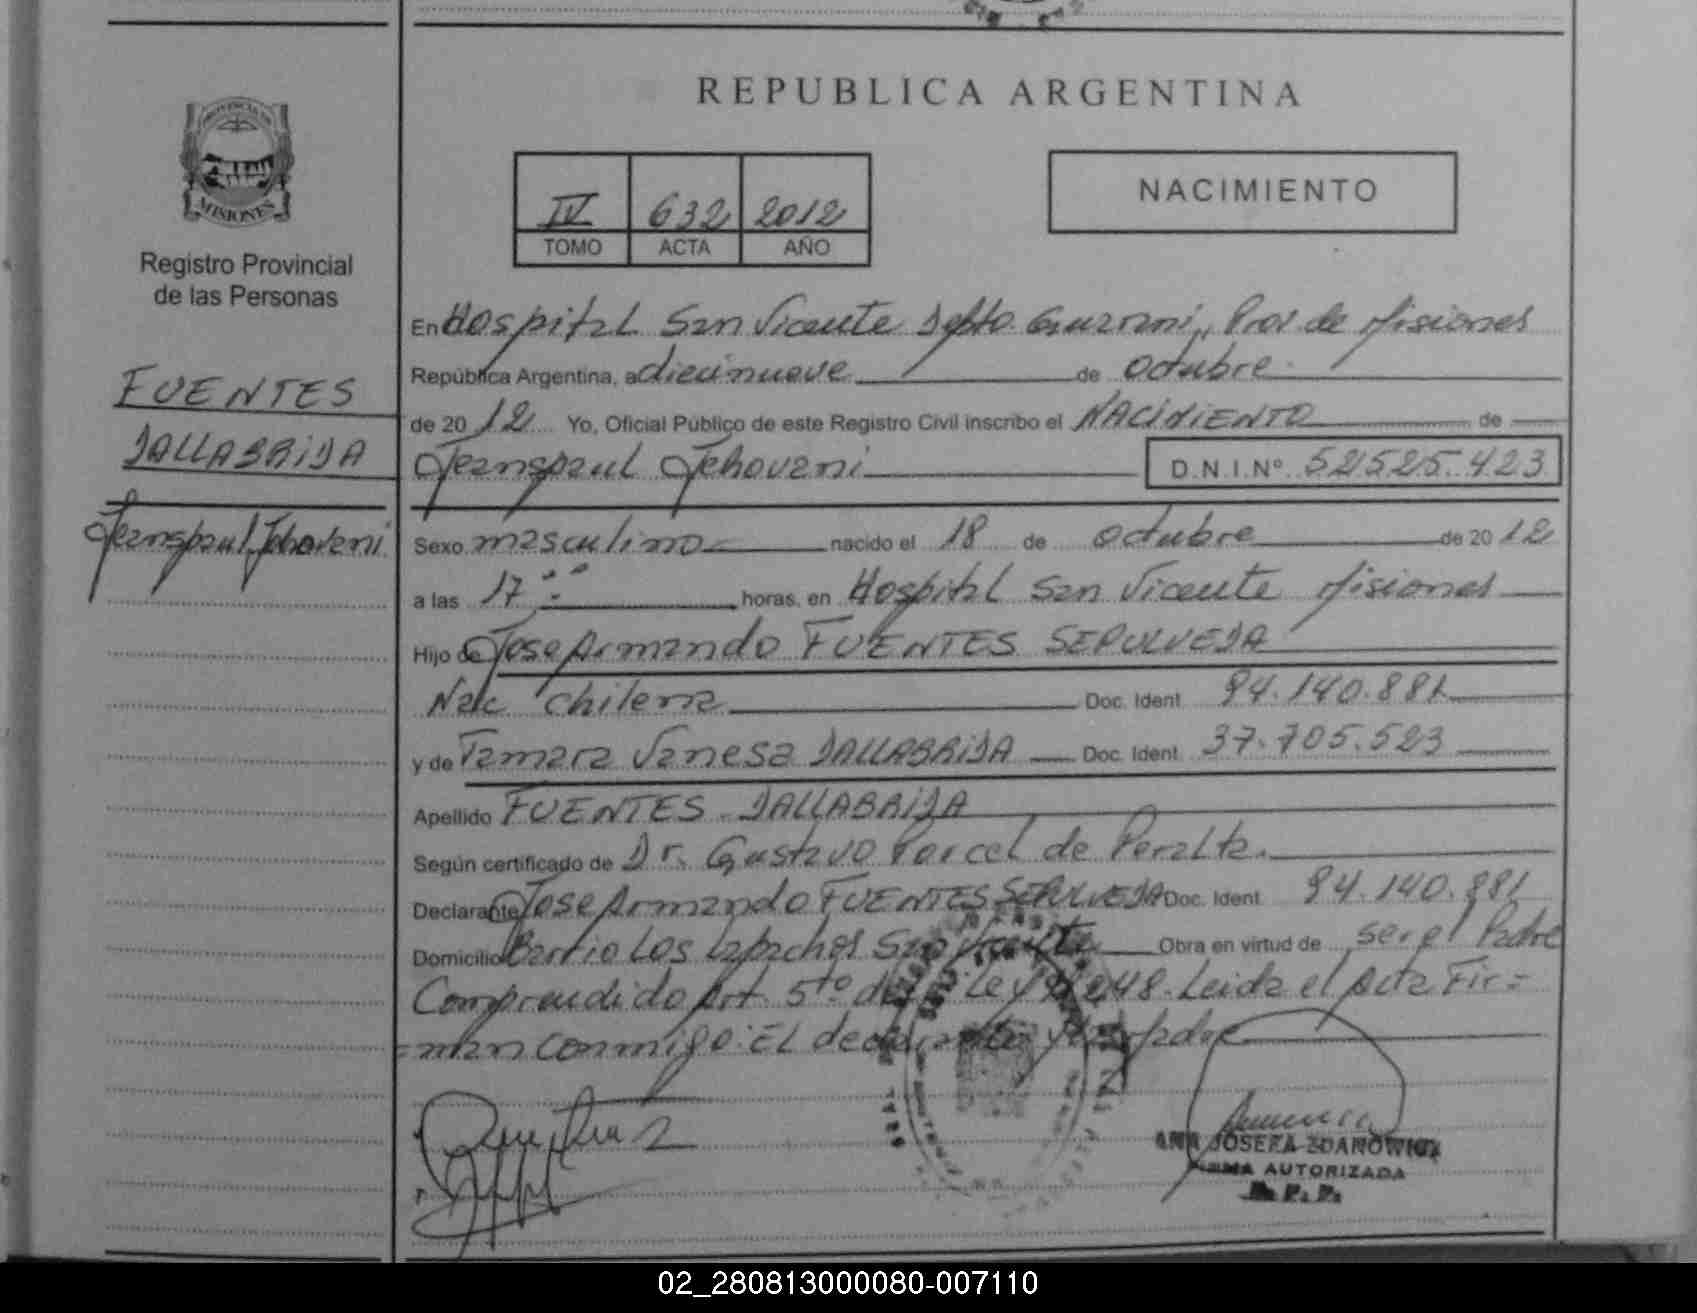 REPUBLICA ARGENTINA
PROVINCIA DE
MISIONES
Registro Provincial
de las Personas
FUENTES
DALLABRIDA
Jeanspaul Jehovani
IV 632 2012
TOMO ACTA AÑO
NACIMIENTO
En Hospital San Vicente Depto. Guarani, Prov. de Misiones
República Argentina, a diecinueve de octubre
de 2012 Yo, Oficial Público de este Registro Civil inscribo el NACIMIENTO de
Jeanspaul Jehovani D.N.I.Nº 52.525.423
Sexo masculino nacido el 18 de octubre de 2012
a las 17:" horas, en Hospital San Vicente Misiones
Hijo de Jose Armando FUENTES SEPULVEDA
Nac chilena Doc. Ident. 94.140.881
y de Tamara Vanesa DALLABRIDA Doc. Ident. 37.705.523
Apellido FUENTES DALLABRIDA
Según certificado de Dr. Gustavo Porcel de Peralta.
Declarante Jose Armando FUENTES SEPULVEDA Doc. Ident. 94.140.881
Domicilio Barrio Los Lapachos San Vicente Obra en virtud de ser el Padre
Comprendido Art. 5to de la Ley Leida el Acta Fir=
=man conmigo: El declarante y
ANA JOSEFA ZDANOWICZ
FIRMA AUTORIZADA
R. P. P.
02_280813000080-007110